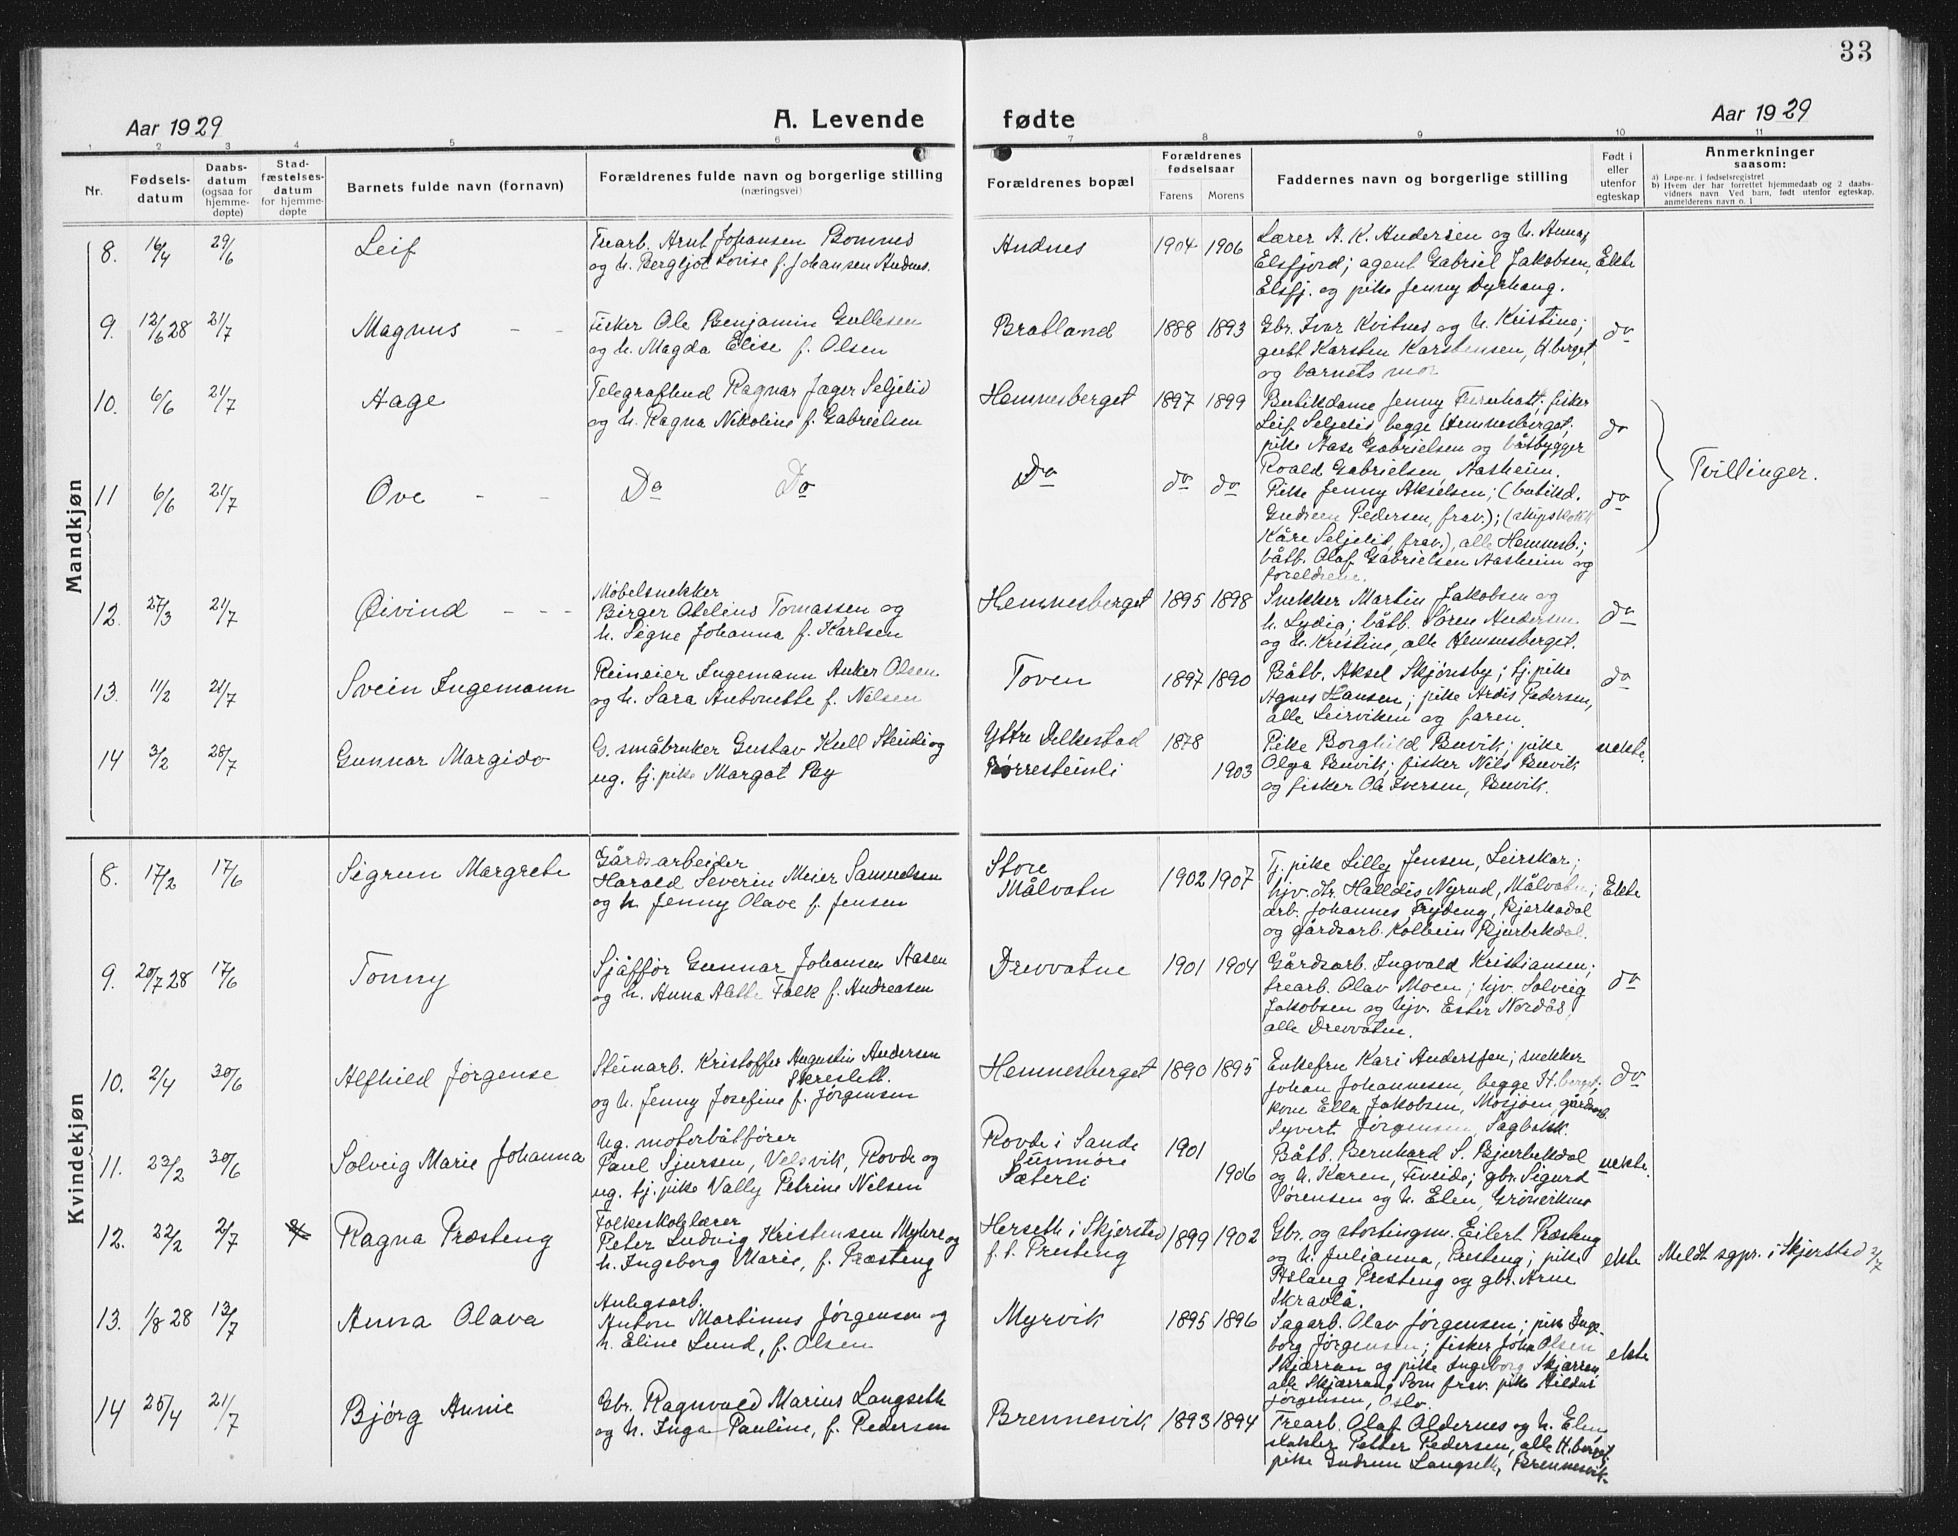 33
Aar 1929 A. Levende fødte Aar 1929
1 2 3 4 5 6 7 8 9 10 11
Nr. Fødsels-datum Daabs-datum (ogsaa for hjemme-døpte) Stad-fæstelses-datum for hjemme-døpte Barnets fulde navn (fornavn) Forældrenes fulde navn og borgerlige stilling (næringsvei) Forældrenes bopæl Forældrenes fødselsaar Farens Morens Faddernes navn og borgerlig stilling Født i eller utenfor egteskap Anmerkninger saasom:
a) Løpe-nr. i fødselsregistret
b) Hvem der har forrettet hjemmedaab og 2 daabs-
vidners navn Ved barn, født utenfor egteskap,
anmelderens navn o. l
Mandkjøn
8. 16/4 29/6 Leif
Trearb. Arnt Johansen Bomnes
og h. Bergljot Lovise f. Johansen Andnes.
Andnes 1904 1906
Lærer A. K. Andersen og h. Anna,
Elsfjord; agent Gabriel Jakobsen,
Elsfj. og pike Jenny Dyrhaug.
Ekte
9. 12/6 28 21/7 Magnus - -
Fisker Ole Benjamin Gullesen
og h. Magda Elise f. Olsen
Bratland 1888 1893
Gbr. Ivar Kvitnes og h. Kristine;
gutt Karsten Karstensen, H.berget,
og barnets mor
do
10. 6/6 21/7 Aage
Ragnar Jager Seljelid
og h. Ragna Nikoline f. Gabrielsen
Hemnesberget 1897 1899
Butikdame Jenny fisker
Leif Seljelid, begge Hemnesberget;
pike Aase Gabrielsen og båtbygger
Roald Gabrielsen, Aasheim.
do
11 6/6 21/7 Ove - -
Do Do
Do do do
Pike Jenny Akselsen; (butikd.
Gudrun Pedersen, frav.); (skipskokk
Kåre Seljelid, frav.), alle Hemnesb.;
båtb. Olaf Gabrielsen Aasheim og
foreldrene.
do
Tvillinger.
12. 27/3 21/7 Øivind - - -
Møbelsnekker
Birger Otelius Tomassen og
h. Signe Johanna f. Karlsen
Hemnesberget 1895 1898
Snekker Martin Jakobsen og
h. Lydia; båtb. Søren Andersen
og h. Kristine, alle Hemnesberget.
do
13. 11/2 21/7 Svein Ingemann
Reineier Ingemann Anker Olsen
og h. Sara Antonette f. Nilsen
Toven 1897 1890
Båtb. Aksel Skjønsby; tj.pike
Agnes Hansen; pike Ardis Pedersen,
alle Leirviken og faren.
do
14 3/2 28/7 Gunnar Margido
G. småbruker Gustav Kull Steiro og
ug. tj. pike Margot Pay
Yttre Dilkestad 1878
1903
Pike Borghild Buvik; pike
Olga Buvik; fisker Nils Buvik
og fisker Ole Iversen, Buvik.
uekte.
Kvindekjøn
8. 17/2 17/6 Sigrun Margrete
Gårdsarbeider
Harald Severin Meier Samuelsen
og h. Jenny Olave f. Jensen
Store
Målvatn 1902 1907
Tj. pike Lilly Jensen, Leirskar;
hjv. dtr Halldis Nyrud, Målvatn;
arb. Johannes Bjerkadal
og gårdsarb. Kolbein Bjerkadal.
Ekte
9. 20/7 28 17/6 Tonny
Sjåffør Gunnar Johansen Aasen
og h. Anna Alette Falk f. Andreasen
Drevvatne 1901 1904
Gårdsarb. Ingvald Kristiansen;
trearb. Olav Moen; hjv. Solveig
Jakobsen og hjv. Ester Nordås,
alle Drevvatn.
do
10. 2/4 30/6 Alfhild Jørgense
Steinarb. Kristoffer Augustin Andersen
og h. Jenny Josefine f. Jørgensen
Hemnesberget 1890 1895
Enkefru Kari Anderssen; snekker
Johan Johannesen, begge H.berget;
kone Ella Jakobsen, Mosjøen, gårdsarb.
Syvert Jørgensen, Sagbakk.
do
11. 23/2 30/6 Solveig Marie Johanna
Ug. motorbåtfører
Paul Sjursen, Velsvik, Rovde og
ug. tj. pike Vally Petrine Nilsen
Rovde i Sande
Sunmøre 1901
Sæterli 1906
Båtb. Bernhard S. Bjerkadal
og h. Karen, Fineide; gbr. Sigurd
Sørensen og h. Elen, Grønviknes
uekte.
12. 22/2 2/7 Ragna Præsteng
Folkeskolelærer
Peter Ludvig Kristensen Myhre og
h. Ingeborg Marie, f. Præsteng
Herseth i Skjersted
f. t. Presteng 1899 1902
Gbr. og stortingsm. Eilert Præsteng
og h. Julianna, Presteng; pike
Aslaug Presteng og gbr. Arne
Skravlå.
ekte Meldt sgpr. i Skjersted 2/7
13. 1/8 28 13/7 Anna Olava
Anlegsarb.
Anton Martinus Jørgensen og
h. Eline Lund, f. Olsen
Myrvik 1895 1896
Sagarb. Olav Jørgensen; pike Inge-
borg Jørgensen; fisker Johan Olsen
Skjærran og pike Ingeborg Skjærran,
alle Skjærran; som frav. pike Hildur
Jørgensen, Oslo.
ekte
14 25/4 21/7 Bjørg Annie
Gbr. Ragnvald Marius Langseth
og h. Inga Pauline, f. Pedersen
Brennesvik 1893 1894
Trearb. Olaf Aldernes og h. Elen,
Petter Pedersen, alle H.berget;
pike Gudrun Langseth, Brennesvik.